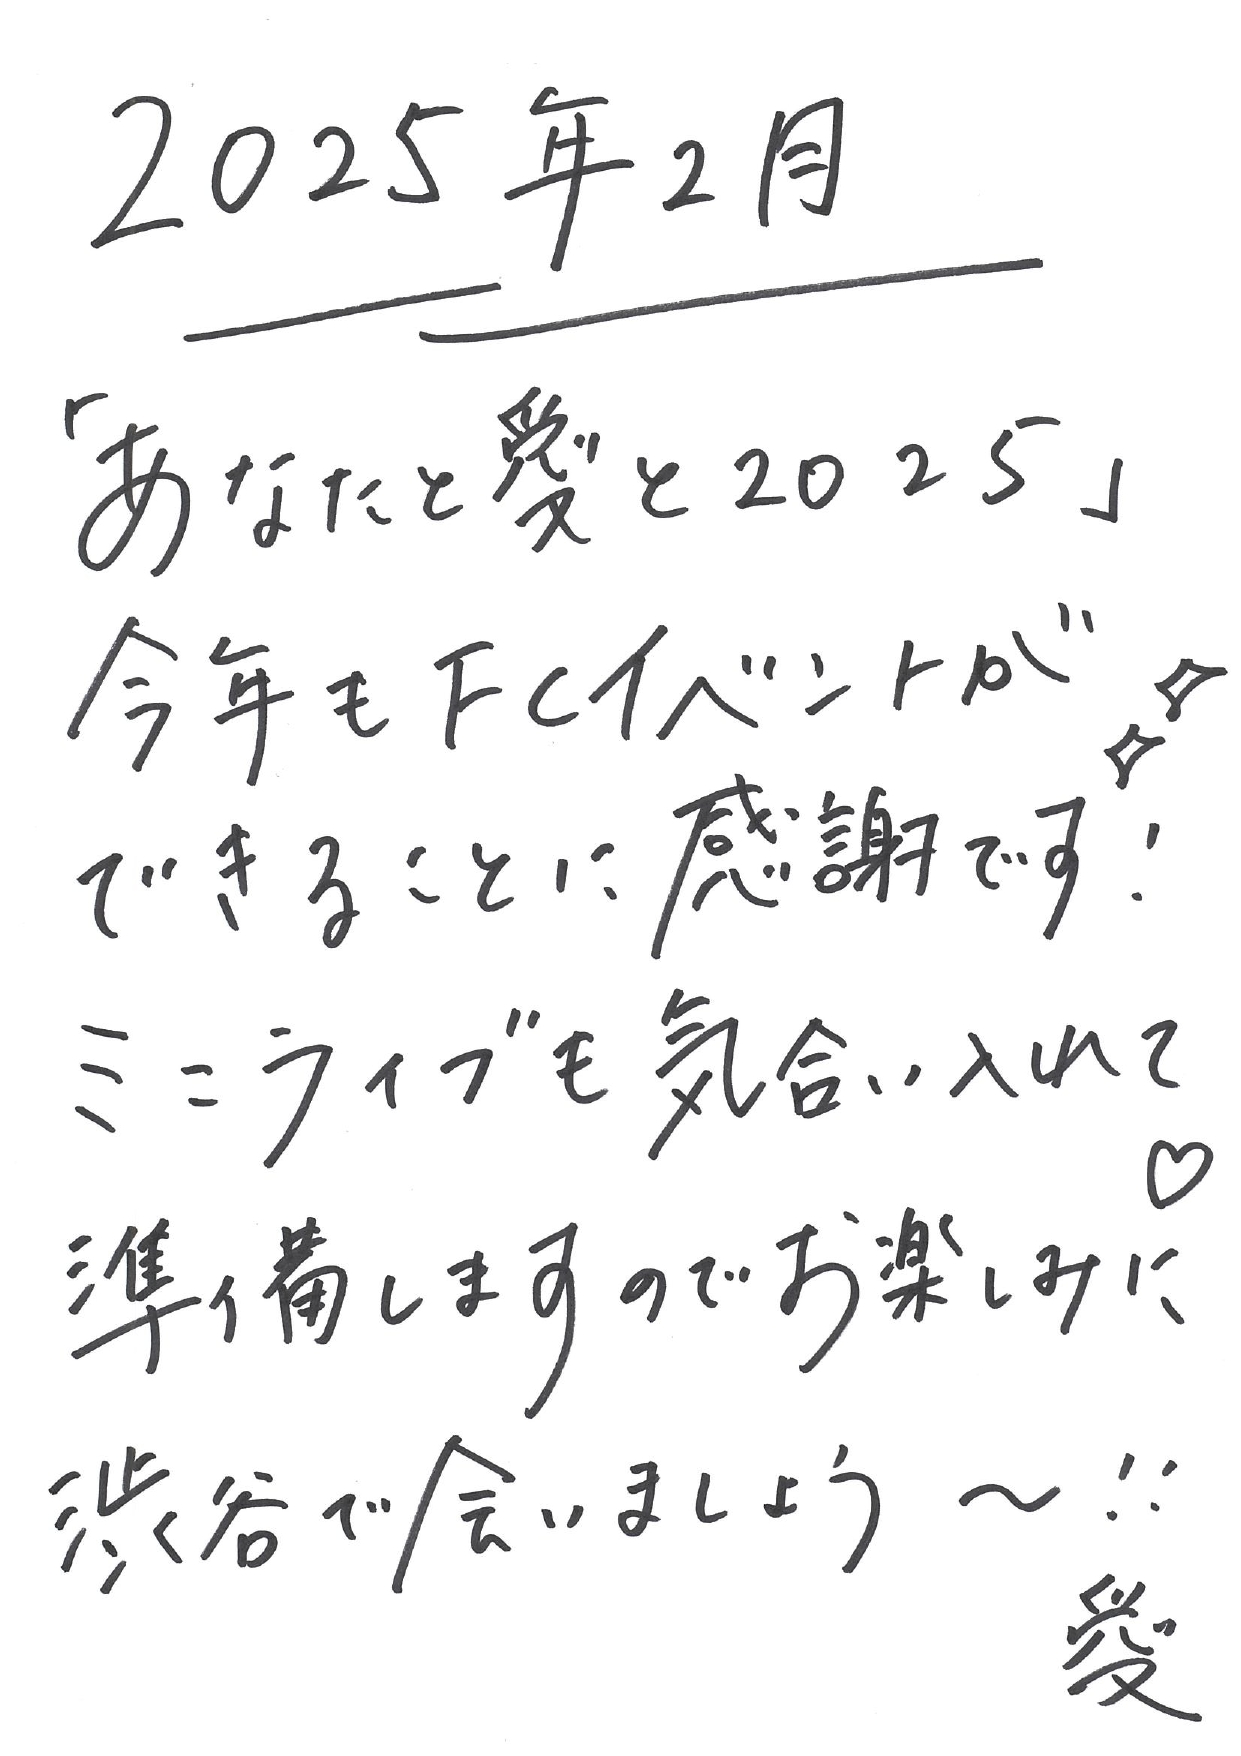 2025年2月
「あなたと愛と2025」
今年もFCイベントが
できることに感謝です!
ミニライブも気合い入れて
準備しますのでお楽しみに♡
渋谷で会いましょう〜!!
愛